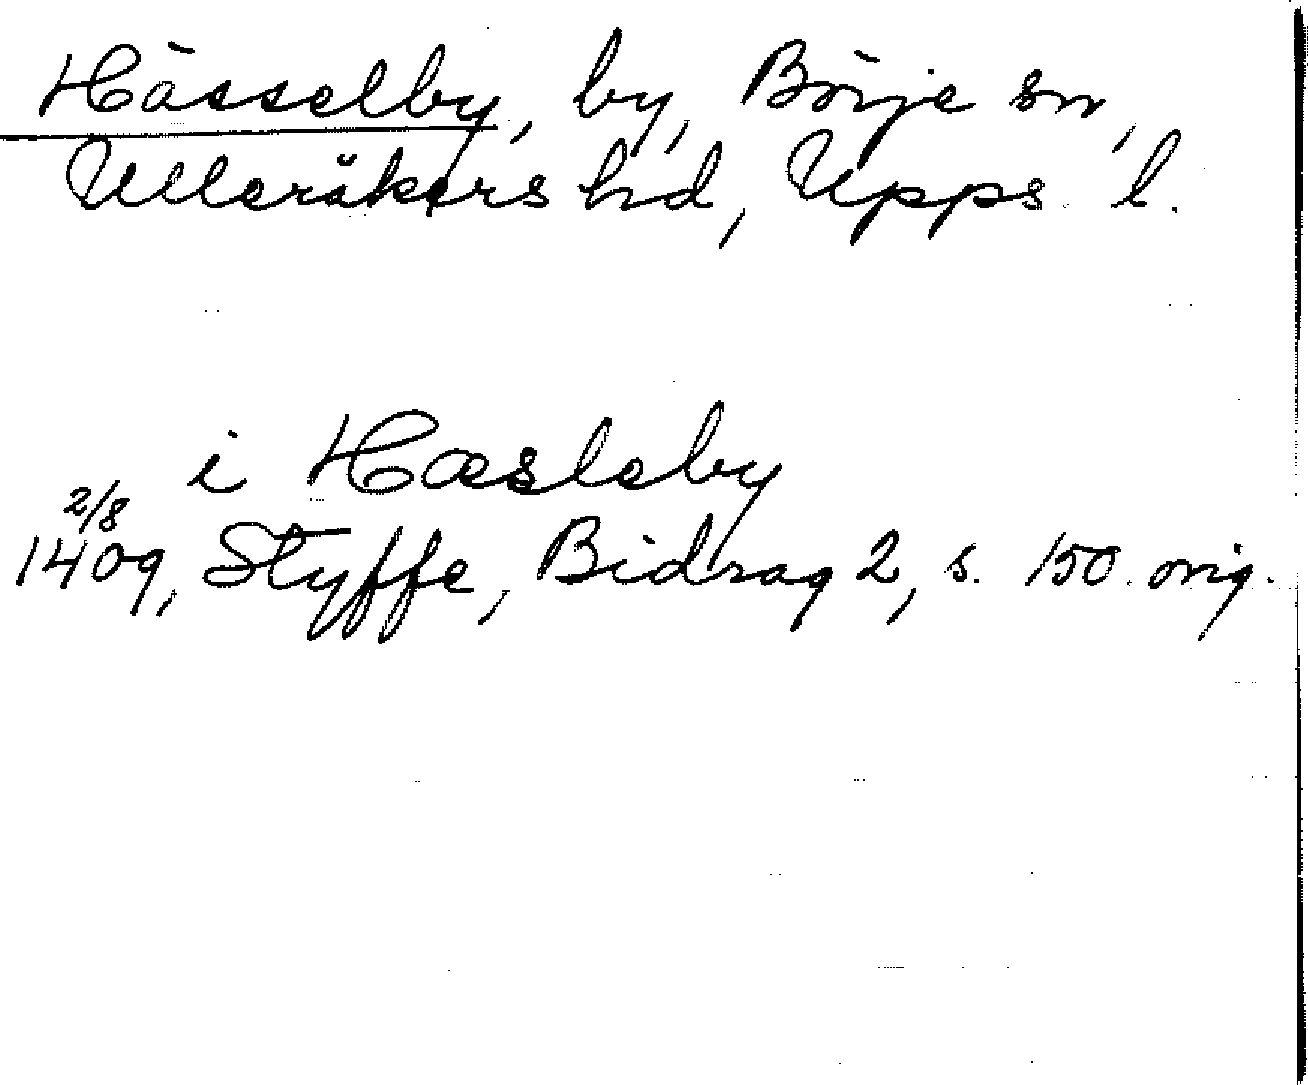 Hässelby, by, Börje sn,
Ulleråkers hd, Upps. l.
i Hæsleby
2/8
1409, Styffe, Bidrag 2, s. 150. orig.